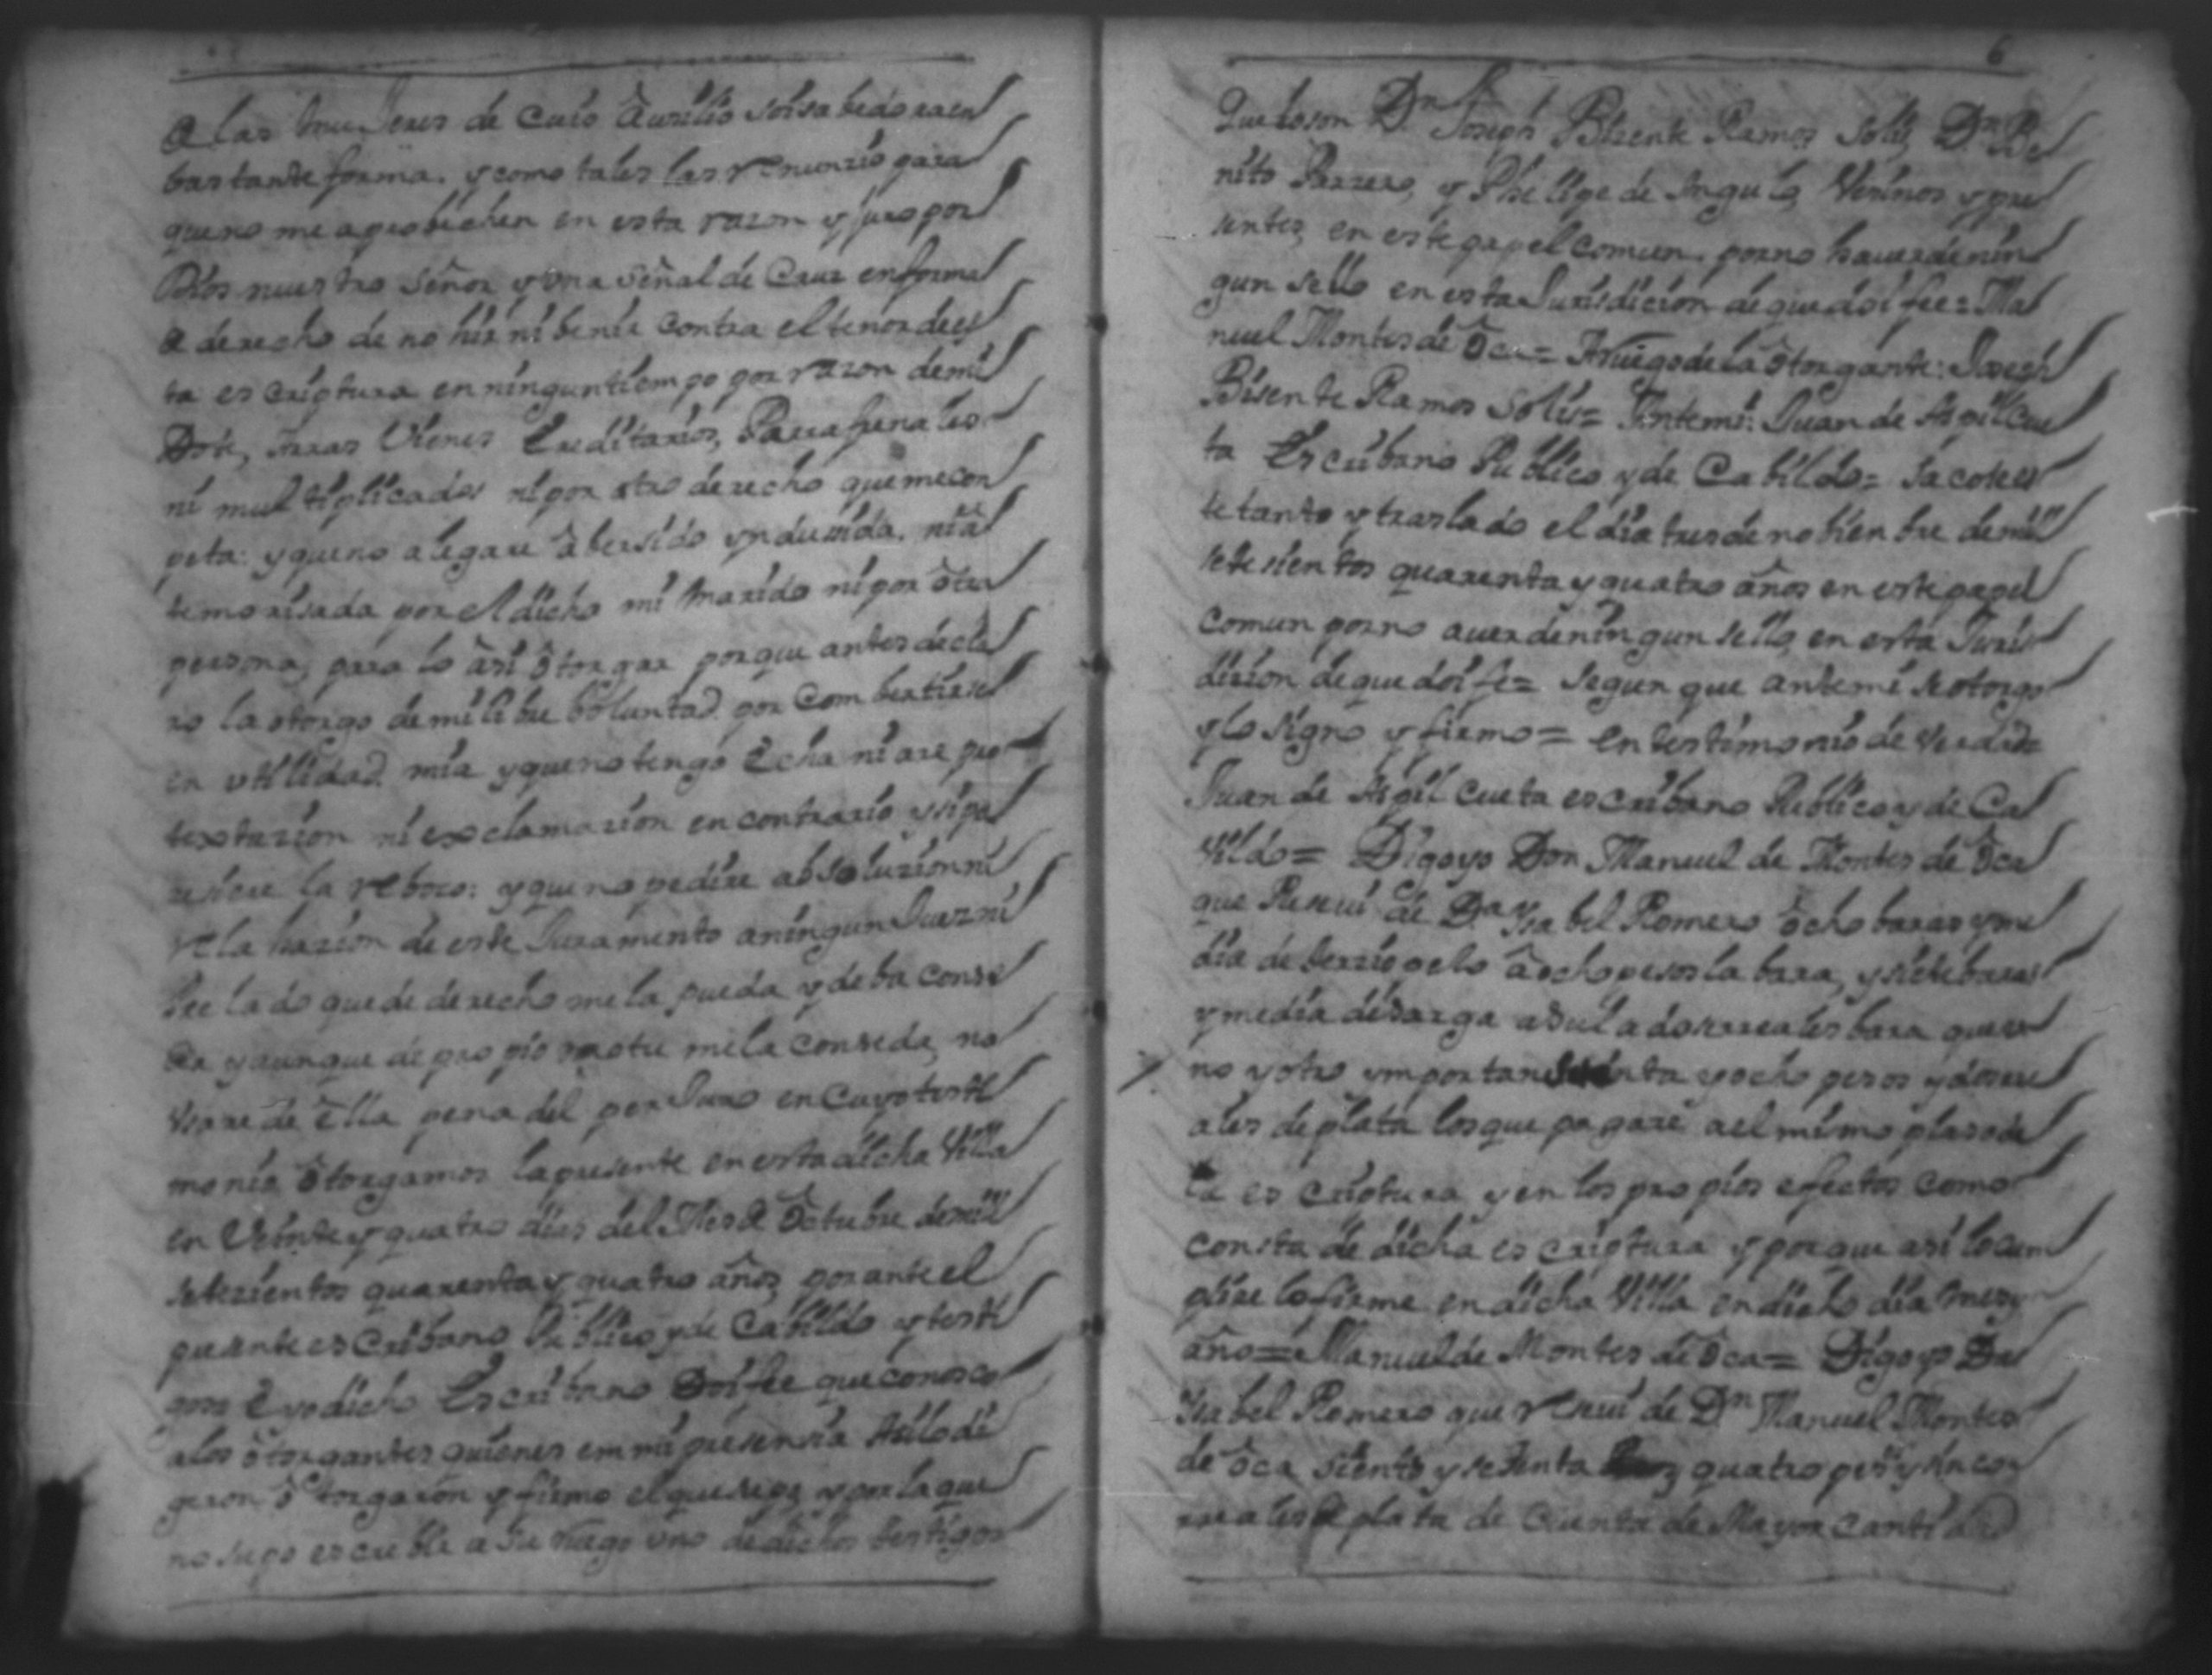 a las mu Jeres de cuio Auxilio soi sabedora en
bastante forma. y como tales las renunzio para
que no me aprobechen en esta razon y juro por
Dios nuestro Señor y una Señal de Cruz en forma
a derecho de no hir ni benir contra el tenor de es
ta escriptura en ningun tiempo por razon de mi
Dote, Arras Vienes Ereditarios, Parafernales
ni multiplicados ni por otro derecho que me con
peta: y que no alegare aber sido ynduzida, ni a
temorisada por el dicho mi Marido ni por otra
persona, para lo asi otorgar porque antes decla
ro la otorgo de mi libre boluntad por combertirse
en utilidad mia y que no tengo Echa ni are pro
textazion ni exclamazion en contrario y si pa
resiere la reboco: y que no pedire absoluzion ni
relaxazion de este Juramento a ningun Juez ni
Prelado que de derecho me la pueda y deba conse
der y aunque de propio motu me la conseda, no
Vsare de Ella pena del perJuro en cuyo testi
monio otorgamos la presente en esta dicha Villa
en Veinte y quatro dias del Mes de Octubre de mill
setezientos quarenta y quatro años por ante el
presente escribano Publico y de Cabildo y testi
gos E yo dicho Escribano Doi fee que conosco
a los otorgantes quienes em mi presensia Asi lo di
geron otorgaron y firmo el que supo y por la que
no supo escrebir a su ruego uno de dichos testigos
6
que lo son Dn Joseph Bizente Ramos Solis, Dn Be
nito Parrero, y Phelipe de Angulo, Vesinos y pre
sentes, en este papel comun por no hauer de nin
gun sello en esta Jurisdicion de que doi fee= Ma
nuel Montes de Oca= A ruego de la otorgante: Joseph
Bisente Ramos Solis= Antemi: Juan de Aspilcue
ta Escribano Publico y de Cabildo= Sacose es
te tanto y traslado el dia tres de nobienbre de mill
setesientos quarenta y quatro años en este papel
comun por no auer de ningun sello, en esta Juris
dizion de que doi fe= segun que ante mi se otorgo
y lo signo y firmo= en testimonio de verdad=
Juan de Aspilcueta escribano Publico y de Ca
vildo= Digo yo Don Manuel de Montes de Oca
que Resiui de Da Ysabel Romero ocho baras y me
dia de terziopelo a ocho pesos la bara, y siete baras
y media de sarga asul a dos rreales bara que u
no y otro ymportan y ocho pesos y dos rre
ales de plata los que pagare a el mismo plaso de
la escriptura y en los propios efectos como
consta de dicha escriptura y porque asi lo cum
plire lo firme en dicha Villa en dicho dia mes y
año= Manuel de Montes de Oca= Digo yo Da
Ysabel Romero que resiui de Dn Manuel Montes
de Oca siento y setenta y quatro pesos y sinco
rreales de plata de quenta de Mayor cantidad